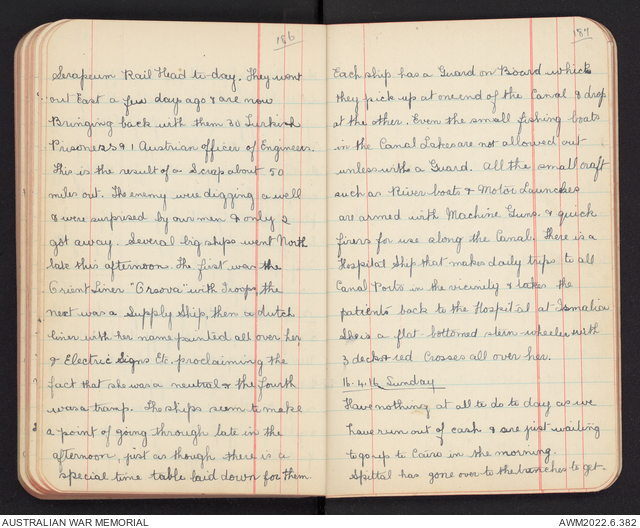 186
Serapeum Rail Head to-day. They went
out East a few days ago & are now
Bringing back with them 30 Turkish
Prisoners & 1 Austrian officer of Engineers.
This is the result of a Scrap about 50
miles out. The enemy were digging a well
& were surprised by our men & only 2
got away. Several big ships went North
late this afternoon. The first was the
Orient Liner "Orsova" with Troops, the
next was a Supply Ship, then a dutch
liner with her name painted all over her
& Electric Signs Etc. proclaiming the
fact that she was a neutral & the fourth
was a tramp. The ships seem to make
a point of going through late in the
afternoon, just as though there is a
special time table laid down for them.
187
Each ship has a Guard on Board which
they pick up at one end of the Canal & drop
at the other. Even the small fishing boats
in the Canal Lakes are not allowed out
unless with a Guard. All the small craft
such as River boats & Motor Launches
are armed with Machine Guns. & quick
firers for use along the Canal. There is a
Hospital Ship that makes daily trips to all
Canal Ports in the vicinity & takes the
patients back to the Hospital at Ismalia
She is a flat bottomed stern wheeler with
3 decks & red Crosses all over her.
16.4.16 Sunday
Have nothing at all to do to day as we
have run out of cash & are just waiting
to go up to Cairo in the morning.
Spittal has gone over to the trenches to get-
AUSTRALIAN WAR MEMORIAL
AWM2022.6.382